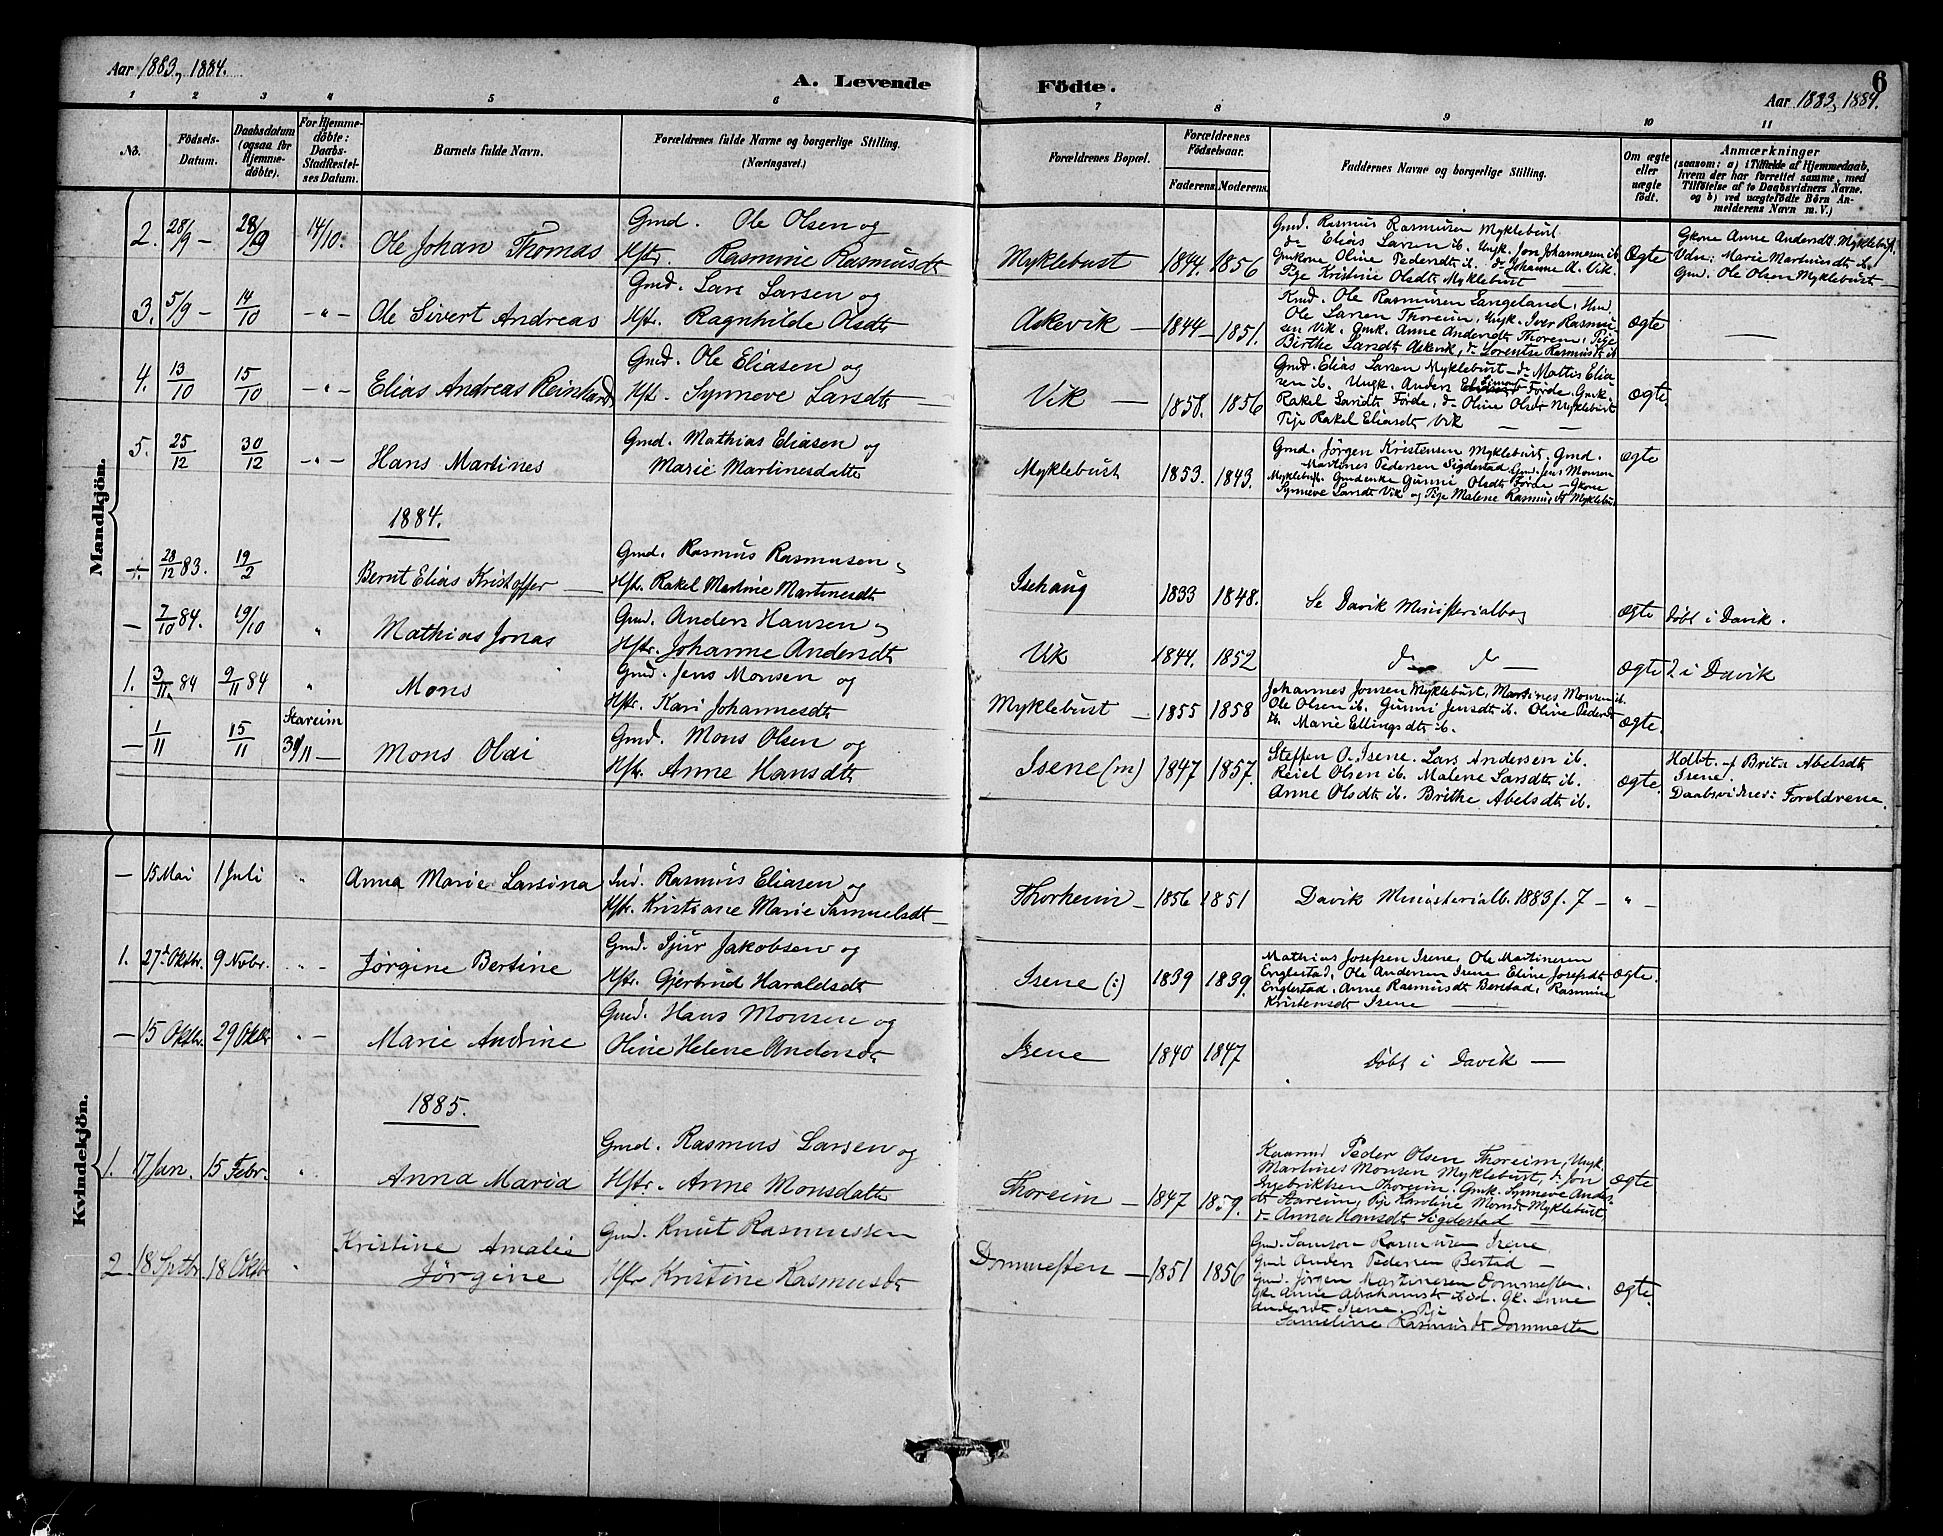 Aar 1883, 1884.
A. Levende
Fødte.
6
Aar 1883, 1884.
1 2 3 4 5 6 7 8 9 10 11
No.
Födsels-Datum.
Daabsdatum (ogsaa for Hjemme-döbte).
For Hjemme-döbte: Daabs-Stadfæstel-ses Datum.
Barnets fulde Navn.
Forældrenes fulde Navne og borgerlige Stilling. (Næringsvei.)
Forældrenes Bopæl.
Forældrenes Födselsaar.
Faderens. Moderens.
Faddernes Navne og borgerlige Stilling.
Om ægte eller uægte født.
Anmærkninger
(saasom: a) i Tilfælde af Hjemmedaab, hvem der har forrettet samme, med Tilföielse af to Daabsvidners Navne. og b) ved uægtefödte Börn An-melderens Navn m. V.)
Mandkjön.
2. 28/9 - 28/9 14/10. Ole Johan Thomas
Gmd. Ole Olsen og
Hstr. Rasmine Rasmusdt
Myklebust 1844. 1856
Gmd. Rasmus Rasmusen Myklebust.
do Elias Larsen ib. Ungk. Jon Johannesen ib.
Gmkone Oline Pedersdt ib. do Johanne A. Vik.
Pige Kristine Olsdt Myklebust
Ægte
Gkone Anne Andersdt Myklebust
Vdn: Marie Martinusdt ib.
Gmd. Ole Olsen Myklebust
3. 5/9 - 14/10 - " - Ole Sivert Andreas
Gmd. Lars Larsen og
Hstr. Ragnhilde Olsdt
Askevik 1844 - 1851.
Kmd. Ole Rasmusen Langeland, Hmd.
Ole Larsen Thoreim, Ungk. Iver Rasmu-
sen Vik. Gmk. Anne Andersdt Thoreim, Pige
Birthe Larsdt Askevik, do Lorentse Rasmusdt ib
Ægte
4. 13/10 15/10 - " - Elias Andreas Reinhard
Gmd. Ole Eliasen og
Hstr. Synneve Larsdt
Vik 1858. 1856
Gmd. Elias Larsen Myklebust - do Mattis Elia-
sen ib. Ungk. Anders Førde, Gmk.
Rakel Larsdt Førde, do Oline Olsdt Myklebust
Pige Rakel Eliasdt Vik
Ægte.
5. 25/12 30/12 - " - Hans Martines
Gmd. Mathias Eliasen og
Marie Martinesdatter
Myklebust 1853. 1843.
Gmd. Jørgen Kristensen Myklebust, Gmd.
Martines Pedersen Sigdestad Gmd. Jens Monsen
Myklebust. Gmdenke Gunni Olsdt Førde - Gkone
Synneve Larsdt Vik og Pige Malene Rasmusdt Myklebust
Ægte
1884.
28/12 83. 19/2 Bernt Elias Kristoffer
Gmd. Rasmus Rasmusen
Hstr. Rakel Martine Martinesdt
Isehaug 1833 1848.
Se Davik Ministerialbog
Ægte Døbt i Davik.
- 7/10 84. 19/10 " Mathias Jonas
Gmd. Anders Hansen
Hstr. Johanne Andersdt
Vik 1844. 1852
do do
Ægte i Davik
1. 3/11. 84 9/11 84 " Mons
Gmd. Jens Monsen og
Hstr. Kari Johannesdt
Myklebust 1855 1858
Johannes Jonsen Myklebust, Martines Monsen ib.
Ole Olsen ib. Gunni Jensdt ib. Oline Pedersdt
ib. Marie Ellingsdt ib.
Ægte.
- 1/11 15/11 Stareim 30/11 - Mons Oldi
Gmd. Mons Olsen og
Hstr. Anne Hansdt
Isene (m) 1847 1857.
Steffen O. Isene. Lars Andersen ib.
Reiel Olsen ib. Malene Larsdt ib.
Anne Olsdt ib. Brithe Abelsdt ib.
Ægte.
Hdbt. af Brita Abelsdt
Isene.
Daabsvidner: Foreldrene.
Kvindekjön.
- 15 Mai 1 Juli " Anna Marie Larsina
Ind. Rasmus Eliasen og
Hstr. Kristiane Marie Samuelsdt
Thorheim 1856 1851
Davik Ministerialb. 1883 f. 7 - " -
1. 27de Oktbr. 9 Novbr. " - Jørgine Bertine
Gmd. Sjur Jakobsen og
Hstr. Gjertrud Haraldsdt
Isene (i) 1839 1839.
Mathias Josefsen Isene, Ole Martinesen
Englestad, Ole Andersen Isene Eline Josefsdt
Englestad, Anne Rasmusdt Berstad, Rasmine
Kristensdt Isene
Ægte.
- 15 Oktbr. 29 Oktbr " - Marie Andrine
Gmd. Hans Monsen og
Oline Helene Andersdt
Isene 1840 1847
Døbt i Davik
1885.
1. 17 Jan. 15 Febr. " Anna Maria
Gmd. Rasmus Larsen og
Hstr. Anne Monsdatter
Thoreim 1847 1859.
Peder Olsen Thoreim, Ungk.
Martines Monsen Myklebust, do Jon
Ingebriktsen Thoreim. Gmk. Synneve Anders-
dt Stareim, Pige Karoline Monsdt Myklebust
do Anna Hansdt Sigdestad
Ægte
2 18 Sptbr. 18 Oktbr " Kristine Amalie
Jørgine
Gmd. Knut Rasmussen
Hstr Kristine Rasmusdt
Dommesten 1851 1856
Gmd. Samson Rasmusen Isene
Gmd Anders Pedersen Berstad
Gmd. Jørgen Martinesen Dommesten.
Gk Anne Abrahamsdt ibid. Gk. Anne
Andersdt Isene. Pige
Sameline Rasmusdt Dommesten
Ægte.